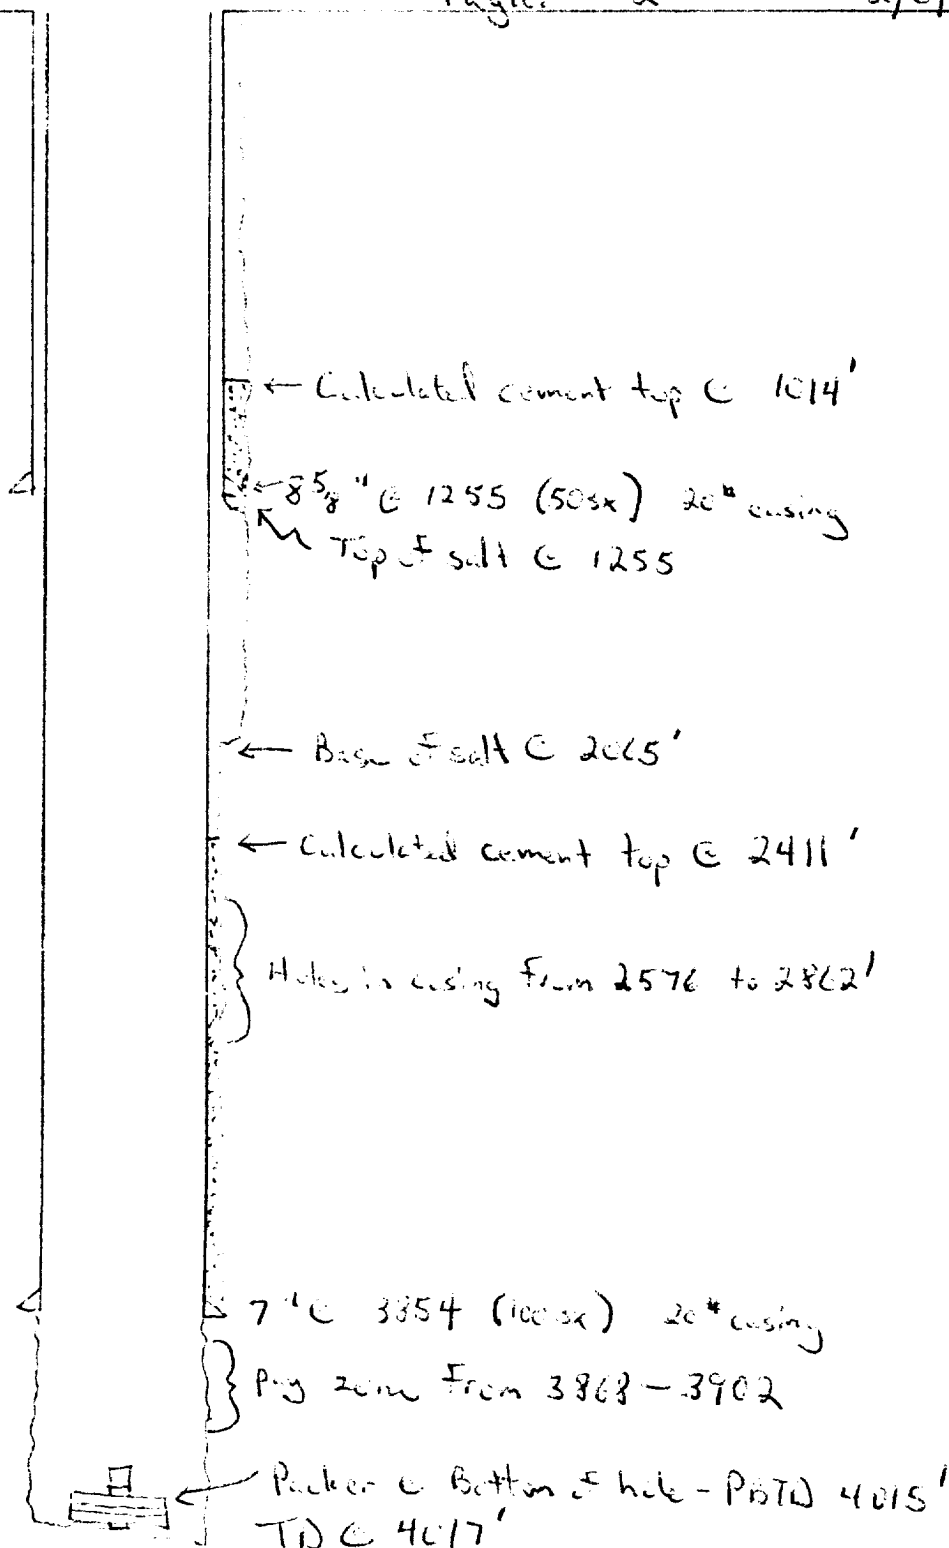 2
← Calculated cement top @ 1014'
← 8 5/8" @ 1255 (50sx) 20# casing
Top of salt @ 1255
← Base of salt @ 2065'
← Calculated cement top @ 2411'
Holes in casing from 2576 to 2862'
7" @ 3854 (100sx) 20# casing
Pay zone from 3868 - 3902
Packer @ Bottom of hole - PBTD 4015'
TD @ 4017'